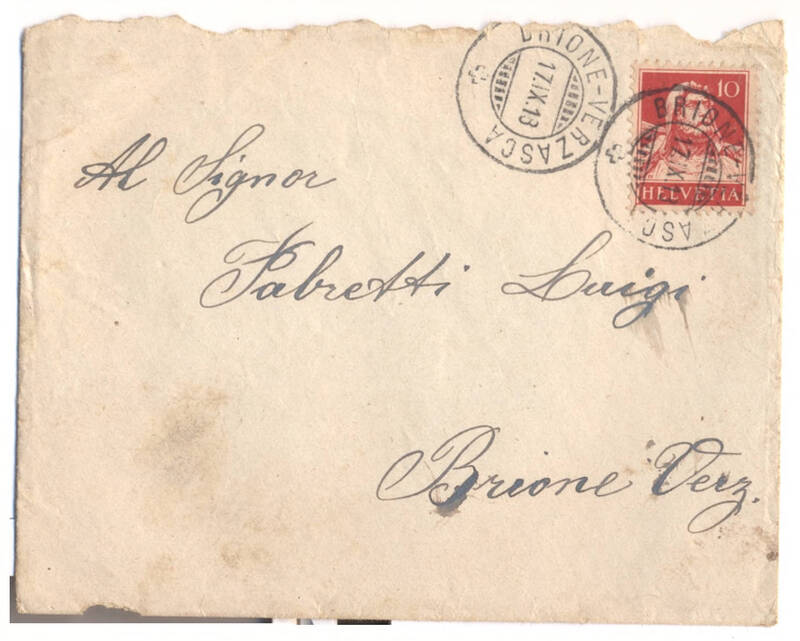 BRIONE-VERZASCA
17.IX.18
10
HELVETIA
BRIONE-V ASC
17.IX.1
Al Signor
Fabretti Luigi
Brione Verz.